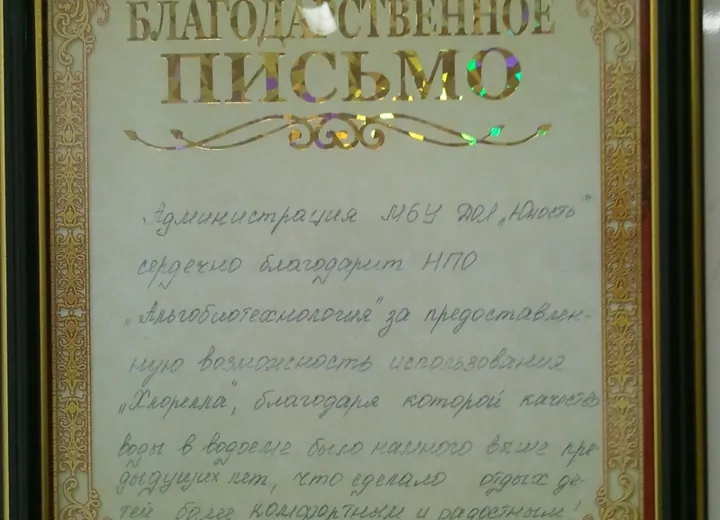 БЛАГОДАРСТВЕННОЕ
ПИСЬМО
Администрация МБУ ДОЛ „Юность"
сердечно благодарит НПО
„Альгобиотехнология" за предоставлен-
ную возможность использования
„Хлорелла", благодаря которой качество
воды в водоеме было намного выше пре-
дыдущих лет, что сделало отдых де-
тей более комфортным и радостным!